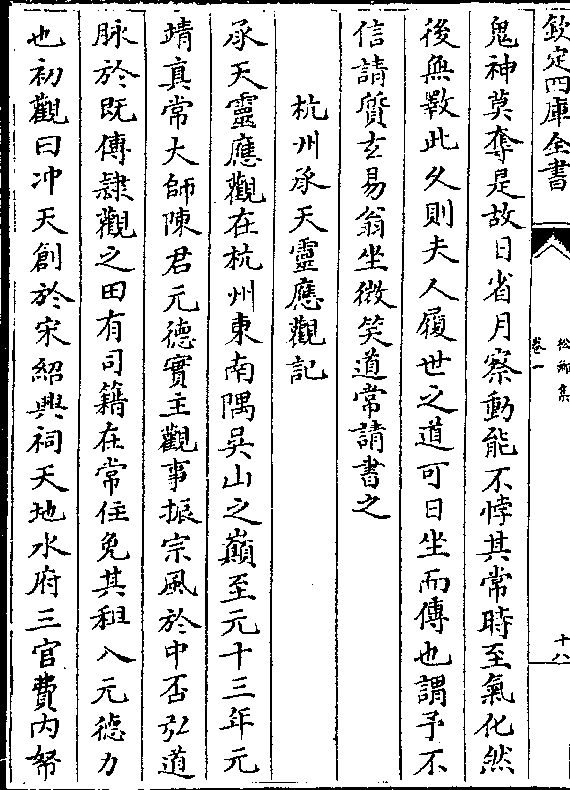 欽定四庫全書
松鄉集
卷一
十八
鬼神莫奪是故日省月察動能不悖其常時至氣化然
後無斁此攵則夫人履世之道可日坐而傳也謂予不
信請質玄易翁坐微笑道常請書之
杭州承天靈應觀記
承天靈應觀在杭州東南隅吳山之巔至元十三年元
靖真常大師陳君元德實主觀事振宗風於中否弘道
脉於既傳隷觀之田有司籍在常住免其租入元德力
也初觀曰冲天創於宋紹興祠天地水府三官費内帑